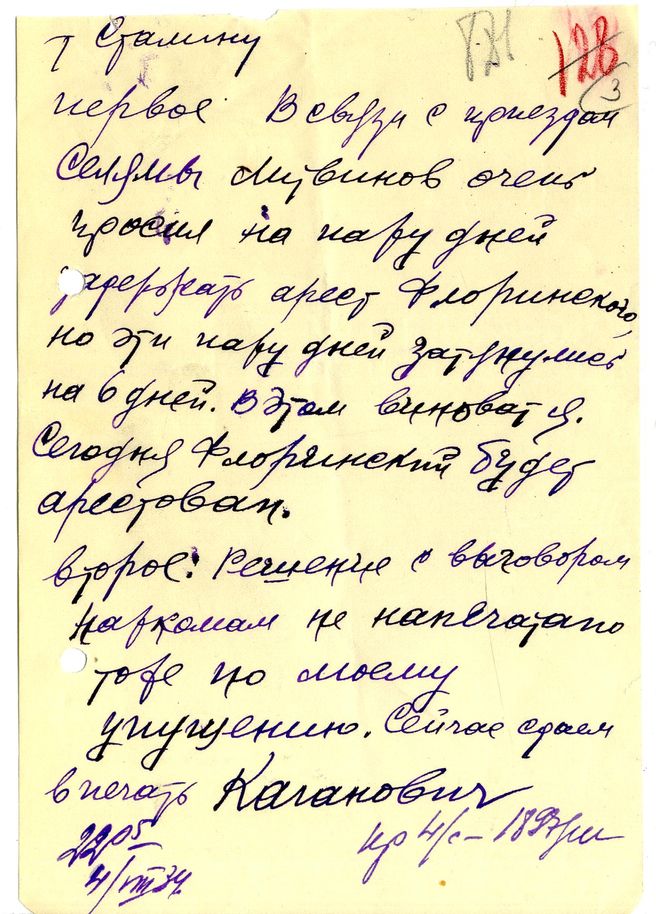 128
3
т Сталину
первое В связи с приездом
Селямы Литвинов очень
просил на пару дней
задержать арест Флоринского,
но эти пару дней затянулись
на 6 дней. В этом виноват я.
Сегодня Флоринский будет
арестован.
второе: Решение с выговором
наркомам не напечатано
тоже по моему
упущению. Сейчас сдаем
в печать Каганович
22 05
4/VIII 34